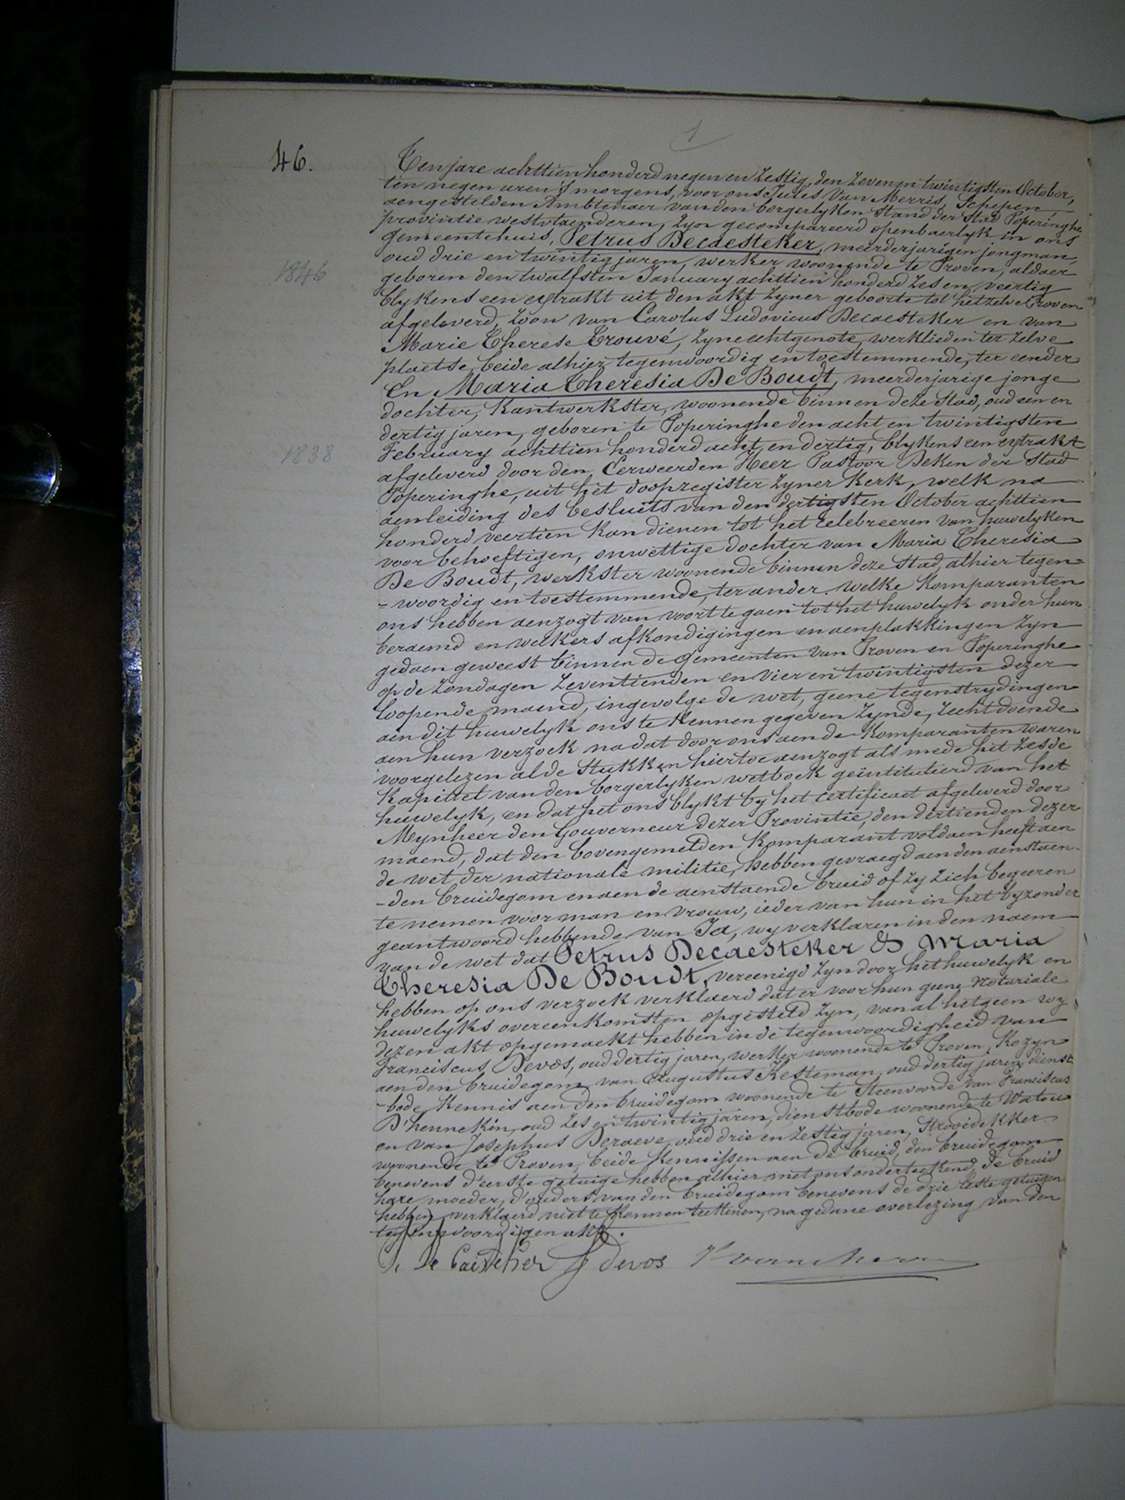 1
46.
Ten jare achttien honderd negen en zestig, den zevenen twintigsten October,
ten negen uren 's morgens, voor ons Jules Van Merris, Schepen
aengestelden Ambtenaer van den borgerlyken Stand der Stad Poperinghe
provintie westvlaenderen, zyn gecompareerd openbaerlyk in ons
gemeentehuis, Petrus Decaesteker, meerderjarigen jongman,
oud drie en twintig jaren, werker woonende te Proven, aldaer
1846
geboren den twalfsten January achttien honderd zes en veertig
blykens een extrakt uit den akt zyner geboorte tot hetzelve Proven
afgeleverd, zoon van Carolus Ludovicus Decaesteker en van
Marie Therese Trouvé, zyne echtgenote, werklieden ter zelve
plaetse, beide alhier tegenwoordig en toestemmende, ter eender
En Maria Theresia De Boudt, meerderjarige jonge
dochter, Kantwerkster, woonende binnen deze Stad, oud een en
dertig jaren, geboren te Poperinghe den acht en twintigsten
1838
February achttien honderd acht en dertig, blykens een extrakt
afgeleverd door den Eerweerden Heer Pastoor Deken der Stad
Poperinghe, uit het doopregister zyner Kerk, welk na
aenleiding des besluits van den dertigsten October achttien
honderd veertien kan dienen tot het celebreeren van huwelyken
voor behoeftigen, onwettige dochter van Maria Theresia
De Boudt, werkster woonende binnen deze Stad, alhier tegen=
=woordig en toestemmende, ter ander, welke Komparanten
ons hebben aenzogt van voort te gaen tot het huwelyk onder hun
beraemd en welkers afkondigingen en aenplakkingen zyn
gedaen geweest binnen de Gemeenten van Proven en Poperinghe
op de Zondagen Zeventienden en Vier en twintigsten dezer
loopende maend, ingevolge de wet, geene tegenstrydingen
aen dit huwelyk ons te Kennen gegeven zynde, recht doende
aen hun verzoek na dat door ons aen de Komparanten waren
voorgelezen al de Stukken hiertoe aenzogt als mede het zesde
Kapittel van den borgerlyken wetboek geïntituleerd van het
huwelyk, en dat het ons blykt by het certificaet afgeleverd door
Mynheer den Gouverneur dezer Provintie, den dertienden dezer
maend, dat den bovengemelden Komparant voldaen heeft aen
de wet der nationale militie, hebben gevraegd aen den aenstaen-
-den bruidegom en aen de aenstaende bruid of zy zich begeeren
te nemen voor man en vrouw, ieder van hun in het byzonder
geantwoord hebbende van Ja, wy verklaren in den naem
van de wet dat Petrus Decaesteker & Maria
Theresia De Boudt, vereenigd zyn door het huwelyk en
hebben op ons verzoek verklaerd dat er voor hun geene notariale
huwelyks overeenkomsten opgesteld zyn, van al hetgeen wy
dezen akt opgemaekt hebben in de tegenwoordigheid van
Franciscus Devos, oud dertig jaren, werker woonende te Proven, Kozyn
aen den bruidegom, van Augustus Kesteman, oud dertig jaren, dienst
-bode, Kennis aen den bruidegom woonende te Steenvoorde van Franciscus
D'hennekin, oud zes en twintig jaren, dienstbode woonende te Watou
en van Josephus Deraeve, oud drie en zestig jaren, Strooidekker
woonende te Proven, beide Kennissen aen de bruid, den bruidegom
benevens d'eerste getuige hebben alhier met ons onderteekend, de bruid
hare moeder, d'ouders van den bruidegom benevens de drie leste getuigen
hebben verklaerd niet te Kennen teekenen, na gedane overlezing van den
tegenwoordigen akt.
devos